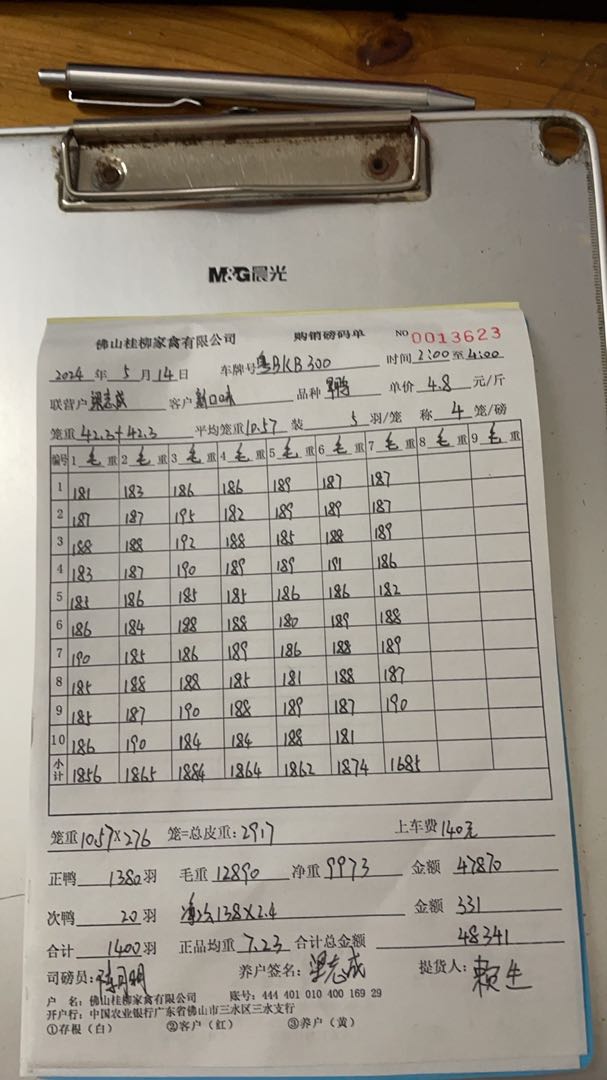 M&G晨光
佛山桂柳家禽有限公司 购销磅码单 NO 0013623
2024 年 5 月 14 日 车牌号 粤BKB300 时间 2:00 至 4:00
联营户 梁志成 客户 新口味 品种 鸭 单价 4.8 元/斤
笼重 42.3+42.3 平均笼重 10.57 装 5 羽/笼 称 4 笼/磅
编号 1 毛 重 2 毛 重 3 毛 重 4 毛 重 5 毛 重 6 毛 重 7 毛 重 8 毛 重 9 毛 重
1 181 183 186 186 189 187 187
2 187 187 195 182 189 189 187
3 188 188 192 188 185 188 189
4 183 187 190 189 189 191 186
5 185 186 185 185 186 186 182
6 186 184 198 188 180 189 188
7 190 185 186 189 186 188 189
8 185 188 188 185 181 188 187
9 185 187 190 188 189 187 190
10 186 190 184 184 188 181
小计 1856 1865 1884 1864 1862 1874 1685
笼重 10.57×276 笼=总皮重: 2917 上车费 140元
正鸭 1380 羽 毛重 12890 净重 9973 金额 47870
次鸭 20 羽 净次138×2.4 金额 331
合计 1400 羽 正品均重 7.23 合计总金额 48341
司磅员: 养户签名: 梁志成 提货人: 赖生
户 名: 佛山桂柳家禽有限公司 账号: 444 401 010 400 169 29
开户行: 中国农业银行广东省佛山市三水区三水支行
①存根（白） ②客户（红） ③养户（黄）